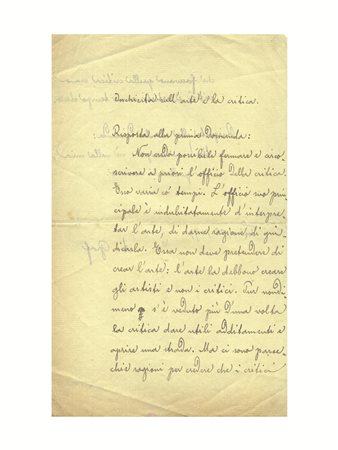 Inchiesta sull'arte e la critica.
Risposta alla prima Domanda:
Non credo possibile fermare e circo-
scrivere a priori l'officio della critica.
Esso varia co' tempi. L'officio suo prin-
cipale è indubitatamente d'interpre-
tar l'arte, di darne ragione, di giu-
dicarla. Essa non deve pretendere di
crear l'arte: l'arte la debbono creare
gli artisti e non i critici. Pur nondi-
meno s'è veduto più d'una volta
la critica dare utili additamenti e
aprire una strada. Ma ci sono parec-
chie ragioni per credere che i critici